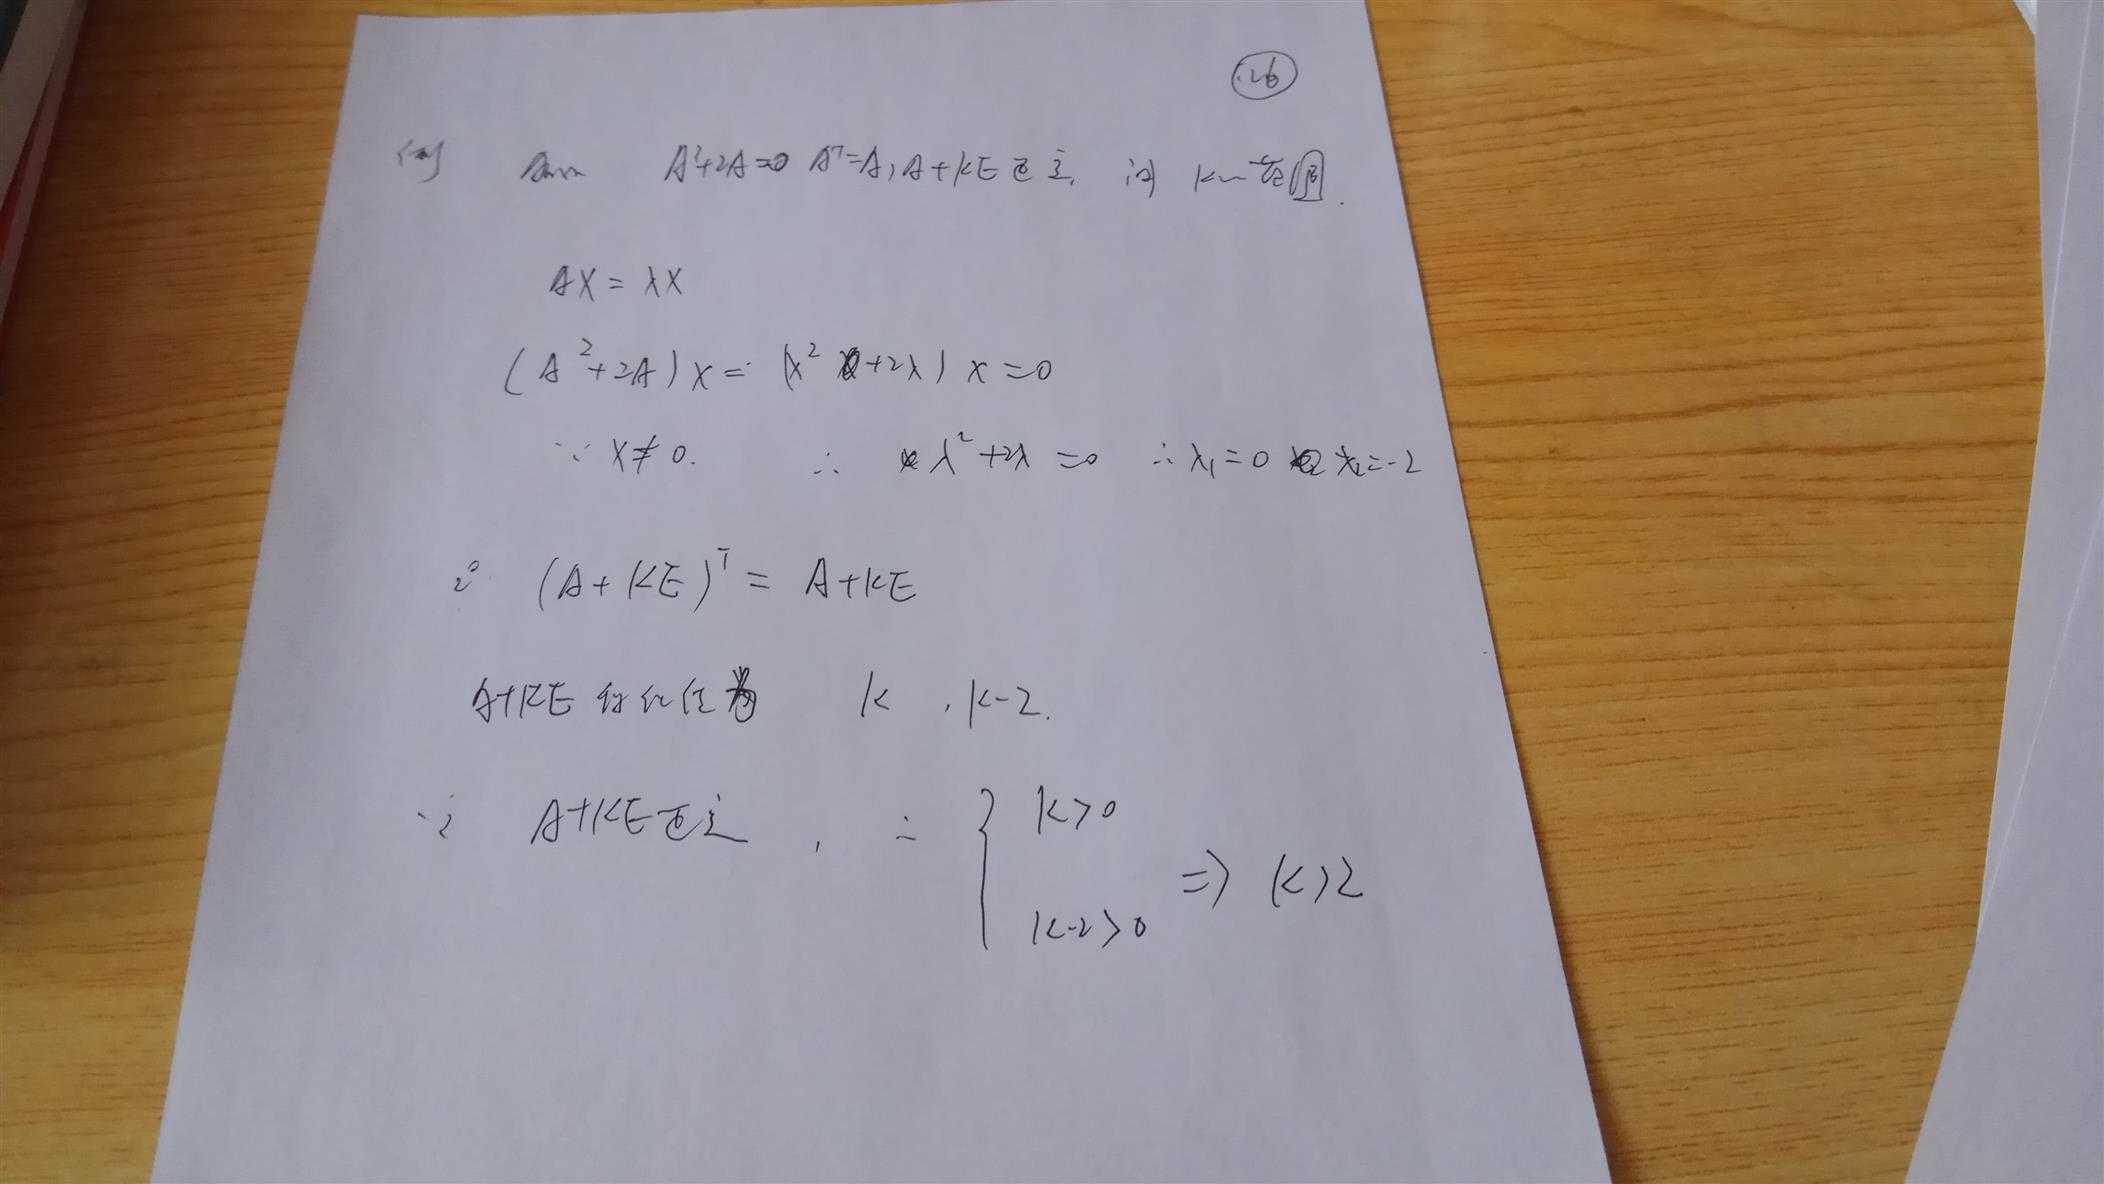 26
例 A²+2A=0 A^T=A, A+KE 正定, 问 K 范围.
AX = λX
(A²+2A)X = (λ²+2λ)X=0
∵ X≠0. ∴ λ²+2λ=0 ∴ λ₁=0 λ₂=-2
2° (A+KE)^T = A+KE
A+KE 特征值为 K, K-2.
∵ A+KE正定, ∴ { K>0
K-2>0 ⇒ K>2